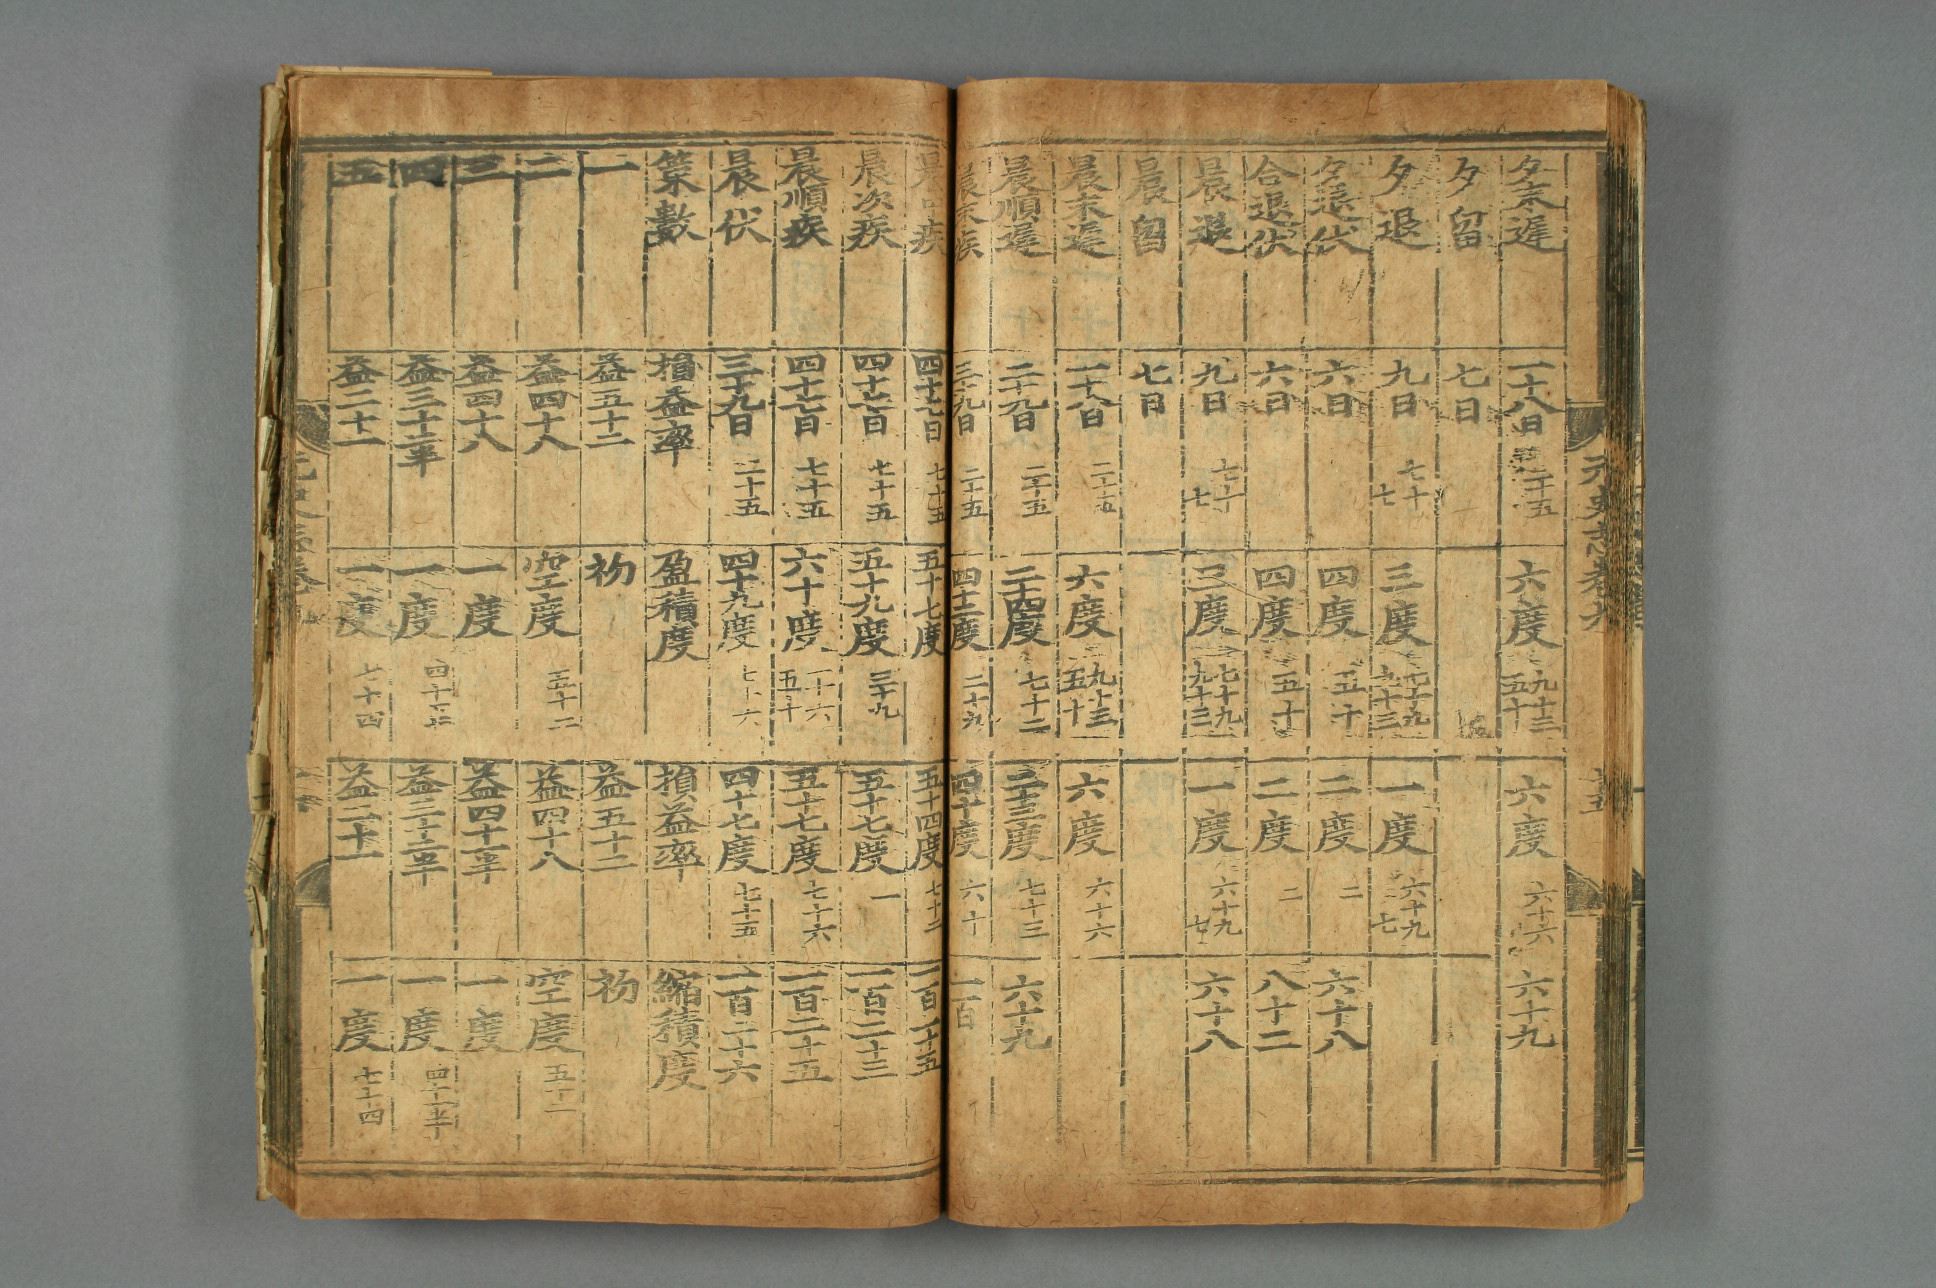 夕末遲 一十八日 二十五 六度 九十三 五十 六度 六十六 六十九
夕留 七日
夕退 九日 七十 七 三度 七十九 九十三 一度 六十九 七
夕退伏 六日 四度 五十 二度 二 六十八
合退伏 六日 四度 五十 二度 二 八十二
晨退 九日 七十 七 三度 七十九 九十三 一度 六十九 七 六十八
晨留 七日
晨末遲 一十八日 二十五 六度 九十三 五十 六度 六十六
晨順遲 二十九日 二十五 二十四度 七十二 二十三度 七十三 六十九
晨末疾 三十九日 二十五 四十二度 二十九 四十度 六十 一百
疾 四十七日 七十五 五十七度 五十四度 七十二 一百一十五
晨次疾 四十七日 七十五 五十九度 三十九 五十七度 一 一百二十三
晨順疾 四十七日 七十五 六十度 一十六 五十 五十七度 七十六 一百二十五
晨伏 三十九日 二十五 四十九度 七十六 四十七度 七十五 一百二十六
策數 損益率 盈積度 損益率 縮積度
一 益五十二 初 益五十二 初
二 益四十八 空度 五十二 益四十八 空度 五十二
三 益四十八 一度 益四十一半 一度
四 益三十二半 一度 益三十二半 一度 四十一半
五 益二十一 一度 七十四 益二十一 一度 七十四
元史志卷九